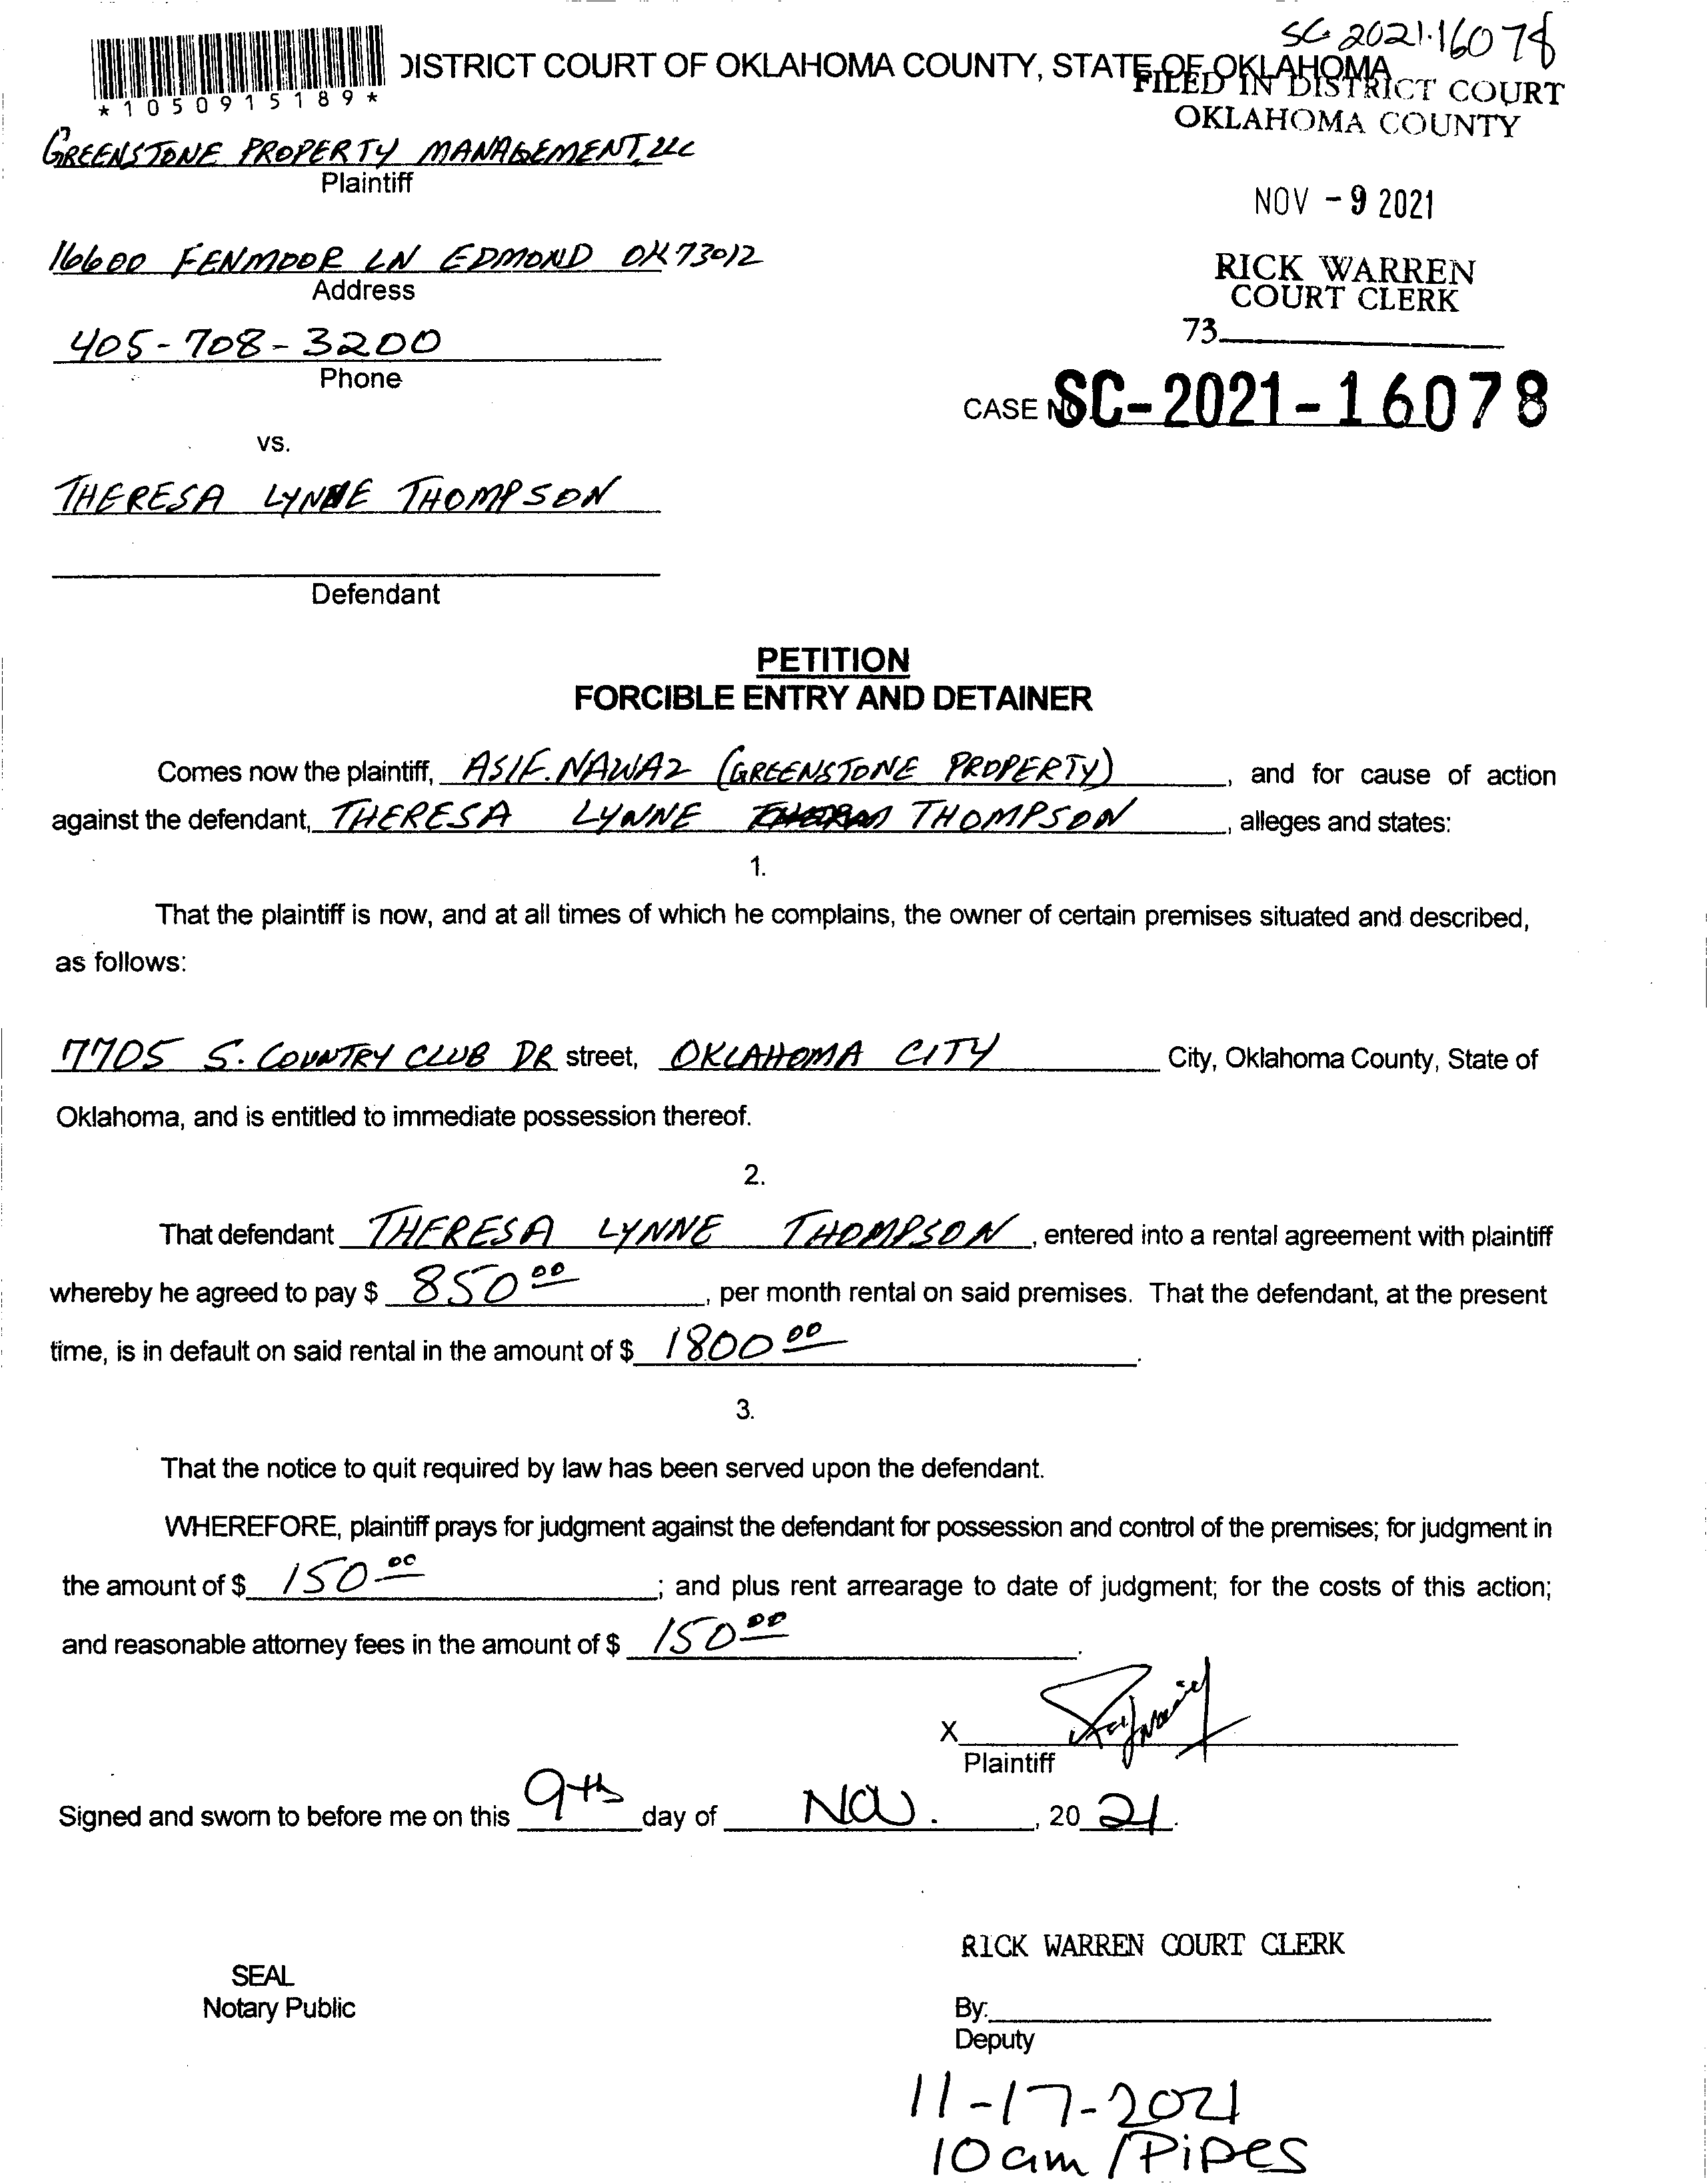 SC-2021-16078
DISTRICT COURT OF OKLAHOMA COUNTY, STATE OF OKLAHOMA
*1050915189*
FILED IN DISTRICT COURT
OKLAHOMA COUNTY
GREENSTONE PROPERTY MANAGEMENT, LLC
Plaintiff
NOV - 9 2021
16600 FENMOOR LN EDMOND OK 73012
Address
RICK WARREN
COURT CLERK
73
405-708-3200
Phone
CASE NO. SC-2021-16078
vs.
THERESA LYNNE THOMPSON
Defendant
PETITION
FORCIBLE ENTRY AND DETAINER
Comes now the plaintiff, ASIF. NAWAZ (GREENSTONE PROPERTY), and for cause of action
against the defendant, THERESA LYNNE THOMPSON, alleges and states:
1.
That the plaintiff is now, and at all times of which he complains, the owner of certain premises situated and described,
as follows:
7705 S. COUNTRY CLUB DR street, OKLAHOMA CITY City, Oklahoma County, State of
Oklahoma, and is entitled to immediate possession thereof.
2.
That defendant THERESA LYNNE THOMPSON, entered into a rental agreement with plaintiff
whereby he agreed to pay $ 850 00, per month rental on said premises. That the defendant, at the present
time, is in default on said rental in the amount of $ 1800 00.
3.
That the notice to quit required by law has been served upon the defendant.
WHEREFORE, plaintiff prays for judgment against the defendant for possession and control of the premises; for judgment in
the amount of $ 150 00; and plus rent arrearage to date of judgment; for the costs of this action;
and reasonable attorney fees in the amount of $ 150 00.
X
Plaintiff
Signed and sworn to before me on this 9th day of Nov., 20 21.
RICK WARREN COURT CLERK
SEAL
Notary Public
By:
Deputy
11-17-2021
10am/Pipes